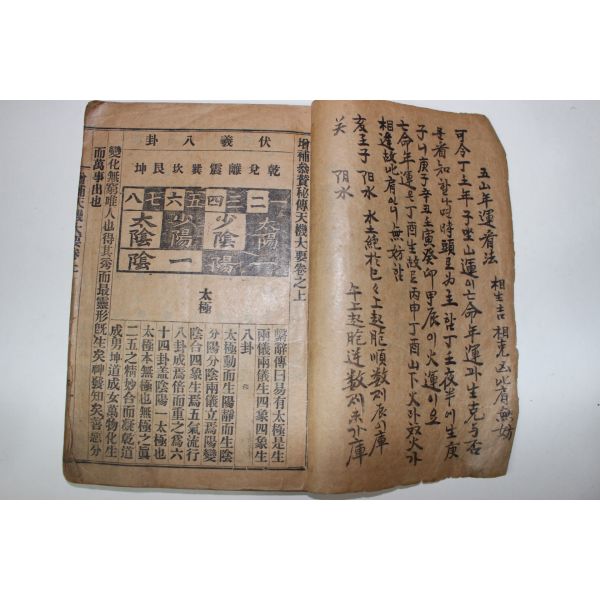 五山年運看法 相生吉 相克凶 此肩無妨
可令丁壬年子坐山運이 亡命年運과 生克与否
子니 庚子辛丑壬寅癸卯甲辰이 火運이요
亡命年運은 丁酉生故로 丙申丁酉山下火라 故火가
相逢故 此肩이니 無妨
关 阳水
亥壬子 阳水 水土絶於巳 上起胞順数 辰이庫
午上起胞逆数 未 庫
增補參贊秘傳天機大要卷之上
伏羲八卦
乾兌離震巽坎艮坤
一二三四五六七八
太陽 少陰 少陽 太陰
陽 陰
太極
繫辭傳曰易有太極是生
兩儀兩儀生四象四象生
八卦
太極動而生陽靜而生陰
分陽分陰兩儀立焉陽變
陰合四象生焉五氣流行
八卦成焉倍而重之爲六
十四卦盖陰陽一太極也
太極本無極也無極之眞
二五之精妙合而凝乾道
成男坤道成女萬物化生
變化無窮唯人也得其秀而最靈形旣生矣神發知矣善惡分
而萬事出也
增補天機大要卷上